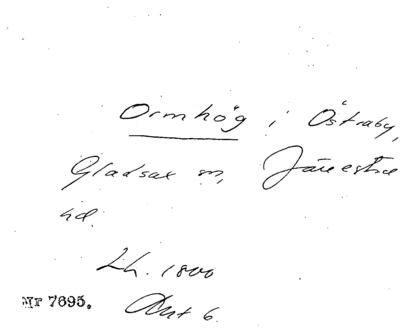 Ormhög i Östraby,
Gladsax sn, Järrestad
hd.
Lh. 1800
Ant 6.
Nr 7695.